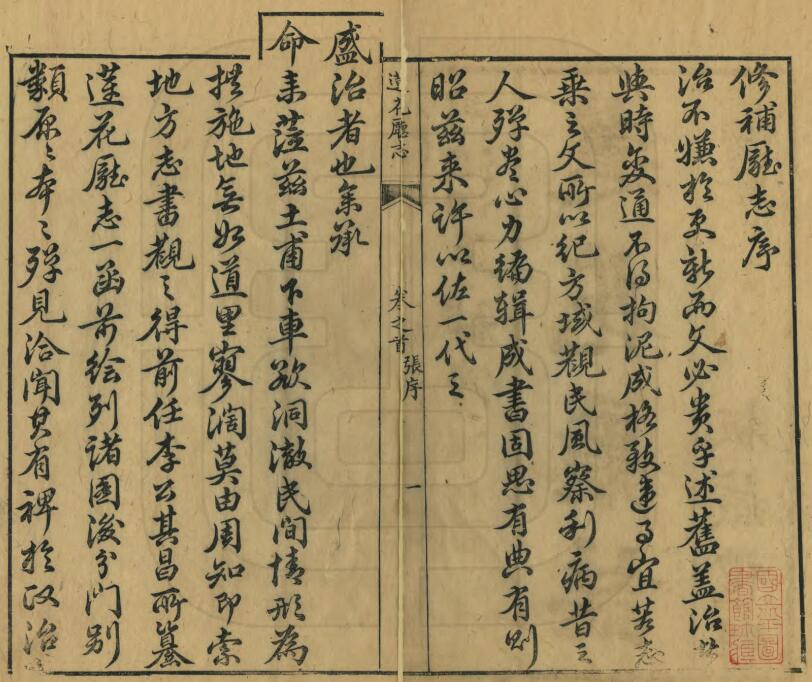 修補廳志序
治不嫌於更新而文必貴乎述舊蓋治
與時變通不得拘泥成格致違事宜若志
乘之文所以紀方域觀民風察利病昔之
人殫卷心力編輯成書固思有典有則
昭茲来許以佐一代之
蓮花廳志
卷之首
張序
一
盛治者也集承
命来蒞茲土甫下車欲洞澈民间情形為
措施地無如道里寥濶莫由周知即索
地方志書觀之得前任李公其昌所纂
蓮花廳志一函前繪列諸圖後分門別
類原之本之殫見洽聞其有裨於政治